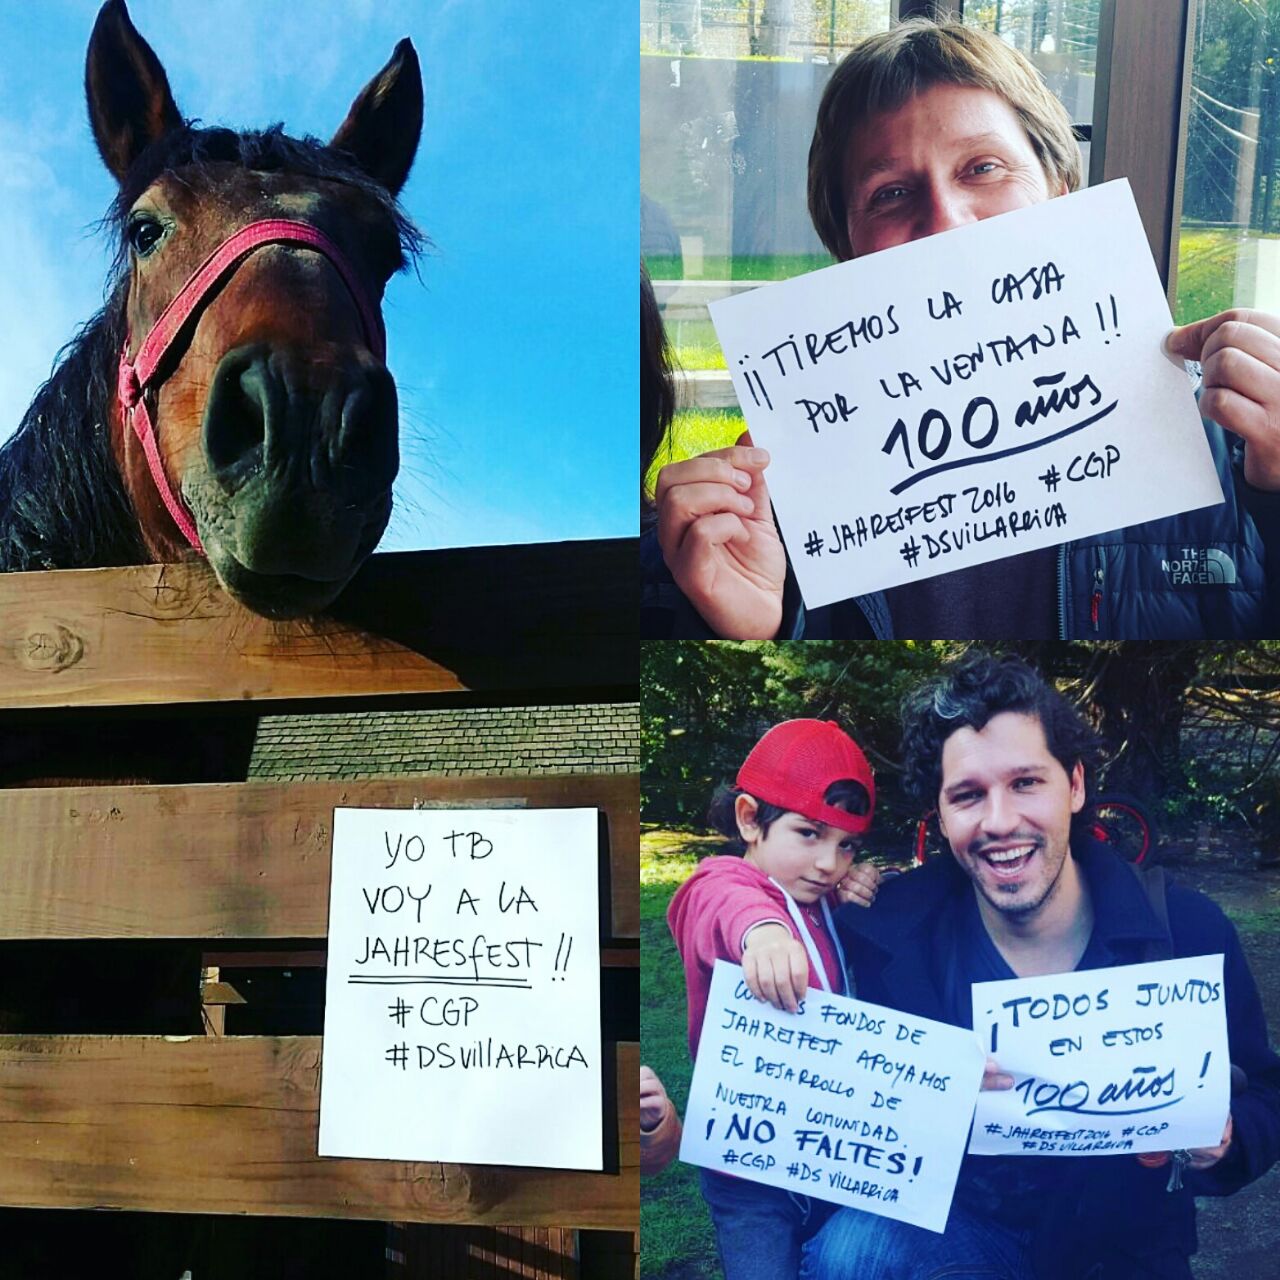 YO TB
VOY A LA
JAHRESFEST !!
#CGP
#DSVillARRiCA
¡¡TIREMOS LA CASA
POR LA VENTANA!!
100 años
#JAHRESFEST 2016 #CGP
#DSVILLARRiCA
THE
NORTH
FACE
FONDOS DE
JAHRESFEST APOYAMOS
EL DESARROLLO DE
NUESTRA COMUNIDAD.
¡NO FALTES!
#CGP #DS VILLARRiCA
¡TODOS JUNTOS
EN ESTOS
100 años!
#JAHRESFEST2016 #CGP
#DS VILLARRICA